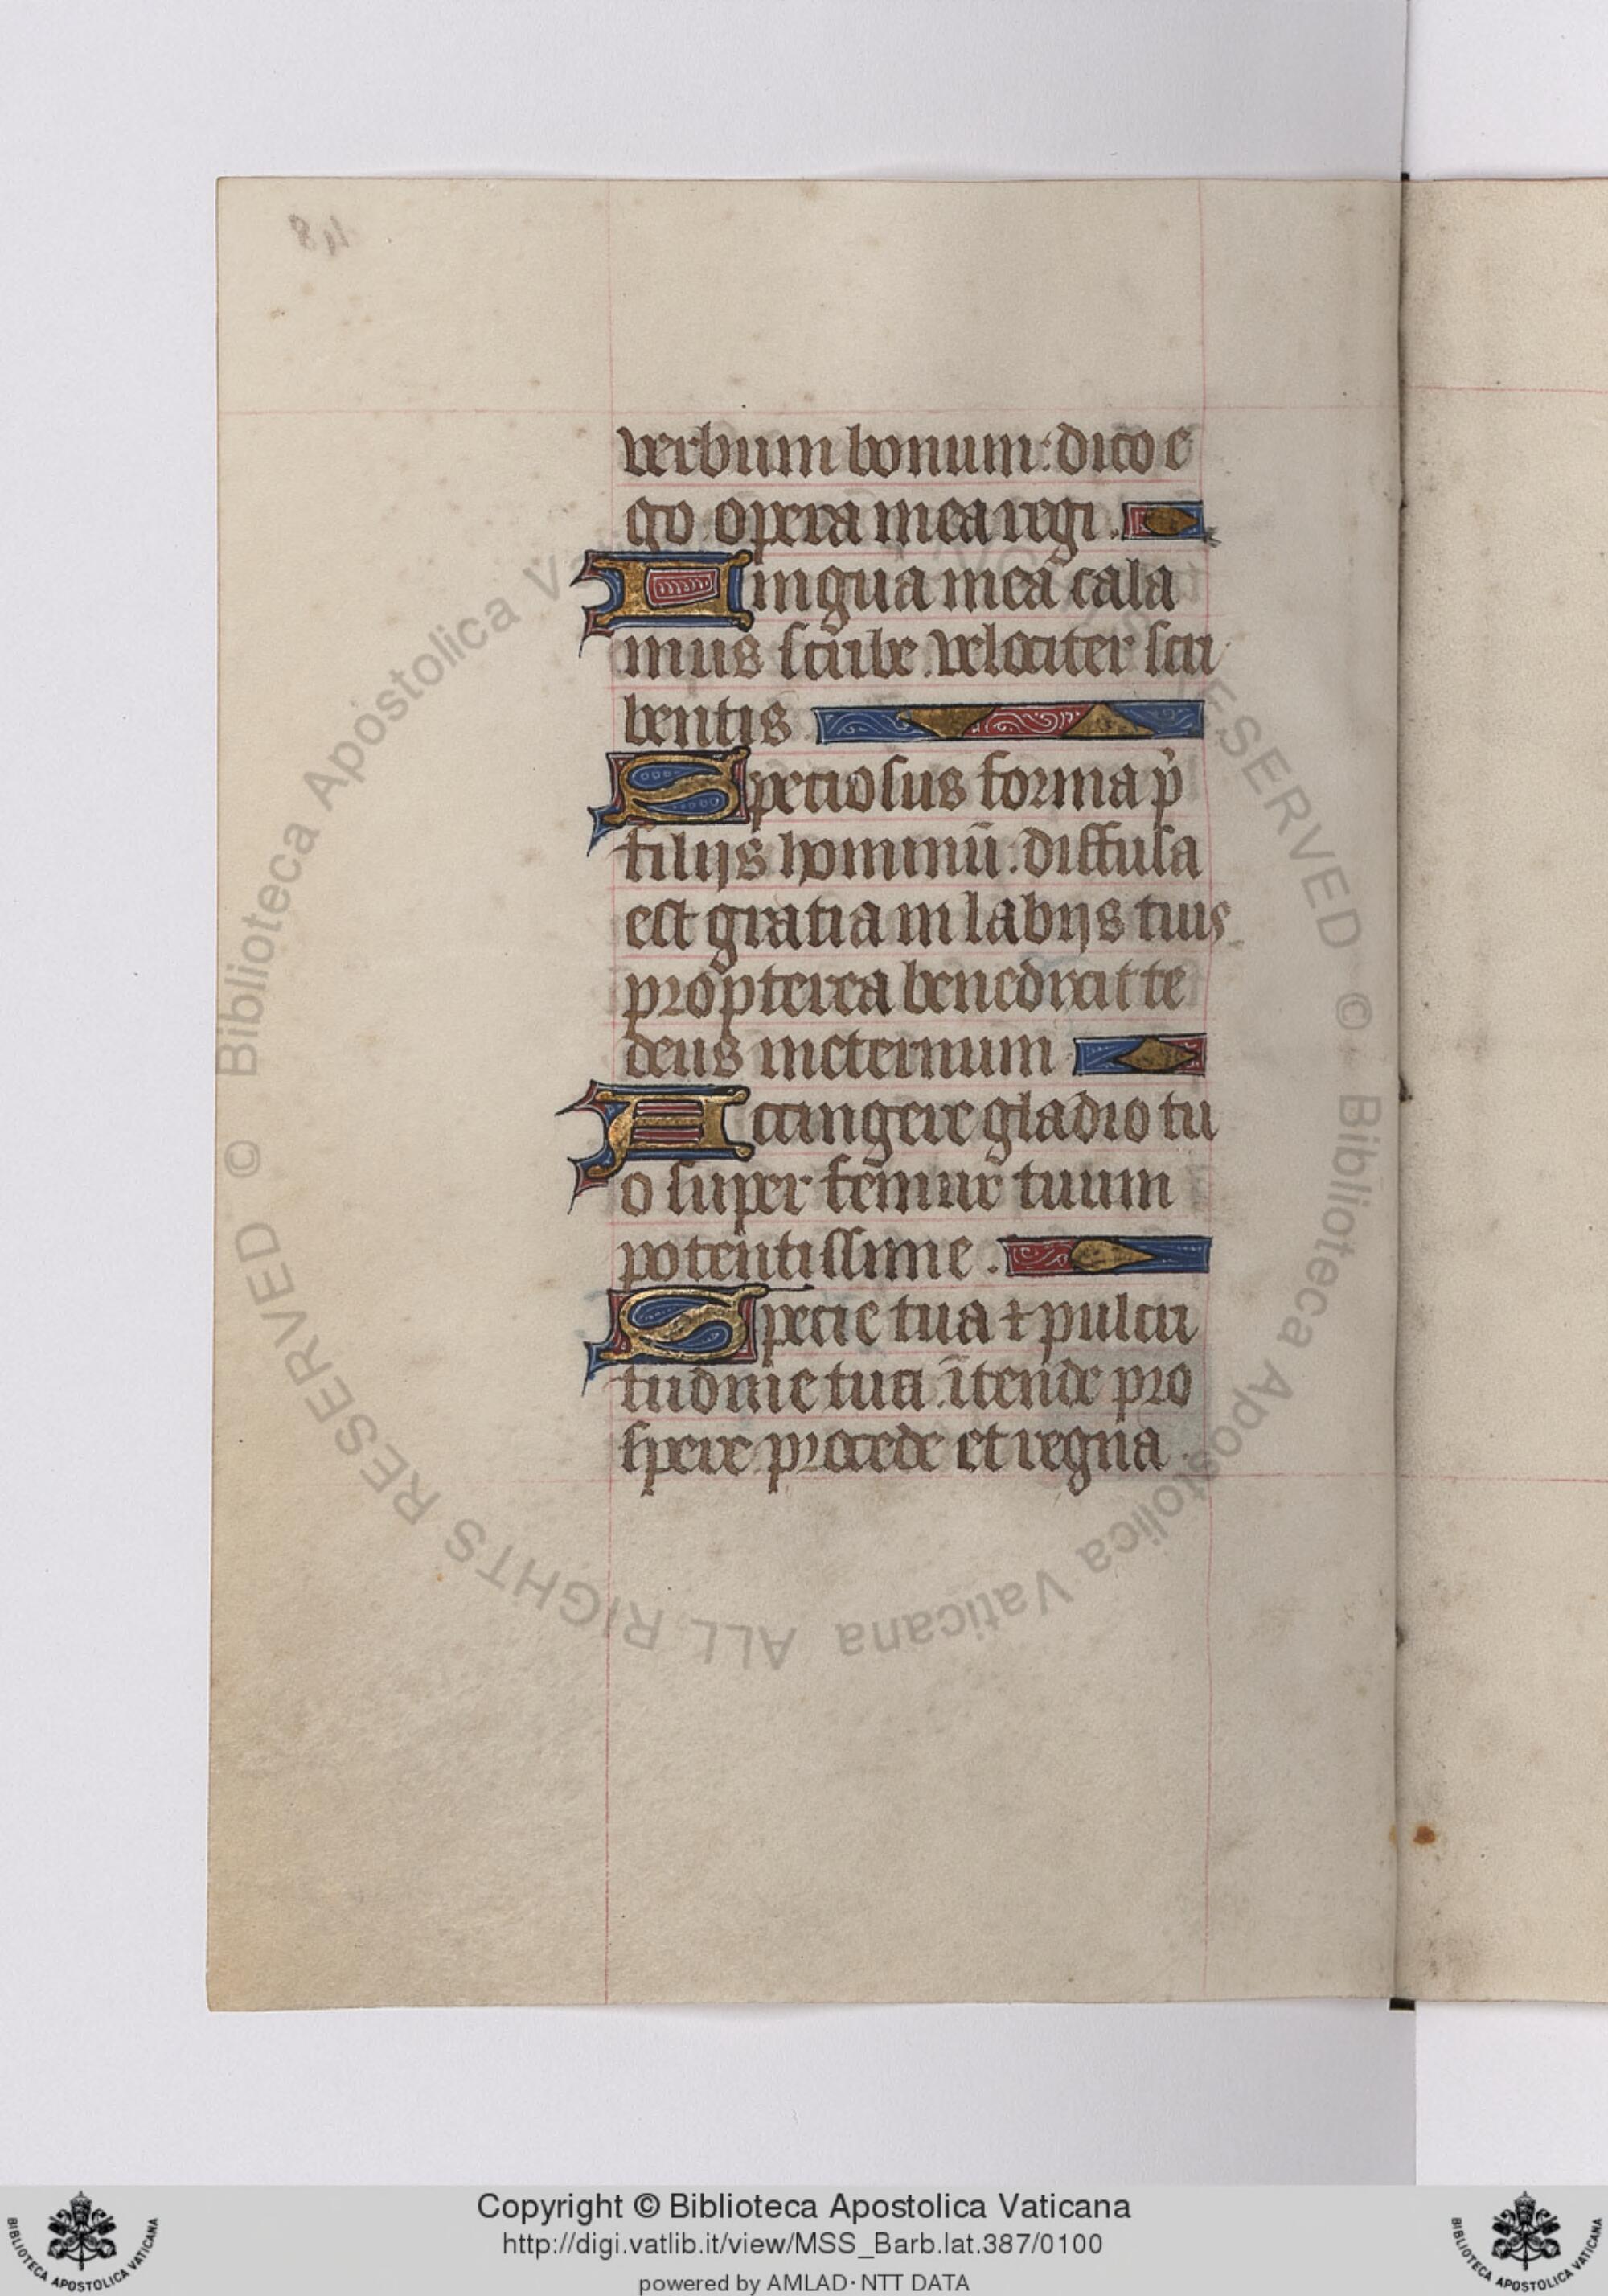 verbum bonum: dico e
go opera mea regi.
Lingua mea cala
mus scribe velociter scri
bentis
Speciosus forma p̄
filijs hominū: diffusa
est gratia in labijs tuis
propterea benedixit te
deus in eternum
Accingere gladio tu
o super femur tuum
potentissime.
Specie tua ⁊ pulcri
tudine tua ītende pro
spere procede et regna
© Biblioteca Apostolica Vaticana ALL RIGHTS RESERVED © Biblioteca Apostolica Vaticana ALL RIGHTS RESERVED
BIBLIOTECA APOSTOLICA VATICANA
Copyright © Biblioteca Apostolica Vaticana
http://digi.vatlib.it/view/MSS_Barb.lat.387/0100
powered by AMLAD·NTT DATA
BIBLIOTECA APOSTOLICA VATICANA